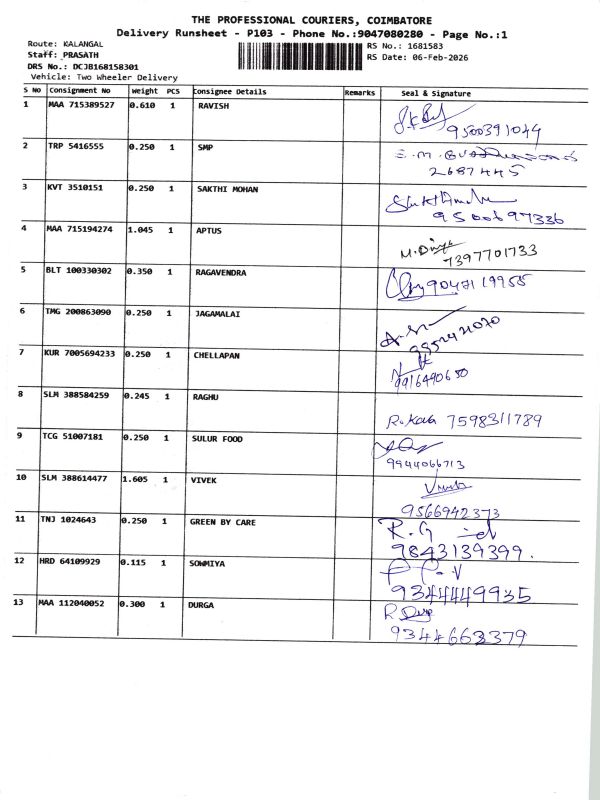 THE PROFESSIONAL COURIERS, COIMBATORE
Delivery Runsheet - P103 - Phone No.:9047080280 - Page No.:1
Route: KALANGAL
RS No.: 1681583
Staff: PRASATH
RS Date: 06-Feb-2026
DRS No.: DCJB168158301
Vehicle: Two Wheeler Delivery
S No Consignment No Weight PCS Consignee Details Remarks Seal & Signature
1 MAA 715389527 0.610 1 RAVISH
9500391044
2 TRP 5416555 0.250 1 SMP
2687445
3 KVT 3510151 0.250 1 SAKTHI MOHAN
9500697336
4 MAA 715194274 1.045 1 APTUS
M. Divya
7397701733
5 BLT 100330302 0.350 1 RAGAVENDRA
9047119955
6 TMG 200863090 0.250 1 JAGAMALAI
7 KUR 7005694233 0.250 1 CHELLAPAN
9916490650
8 SLM 388584259 0.245 1 RAGHU
R. Kala 7598311789
9 TCG 51007181 0.250 1 SULUR FOOD
9944066713
10 SLM 388614477 1.605 1 VIVEK
9566942373
11 TNJ 1024643 0.250 1 GREEN BY CARE
9843139399.
12 HRD 64109929 0.115 1 SOWMIYA
9344449935
13 MAA 112040052 0.300 1 DURGA
9344663379